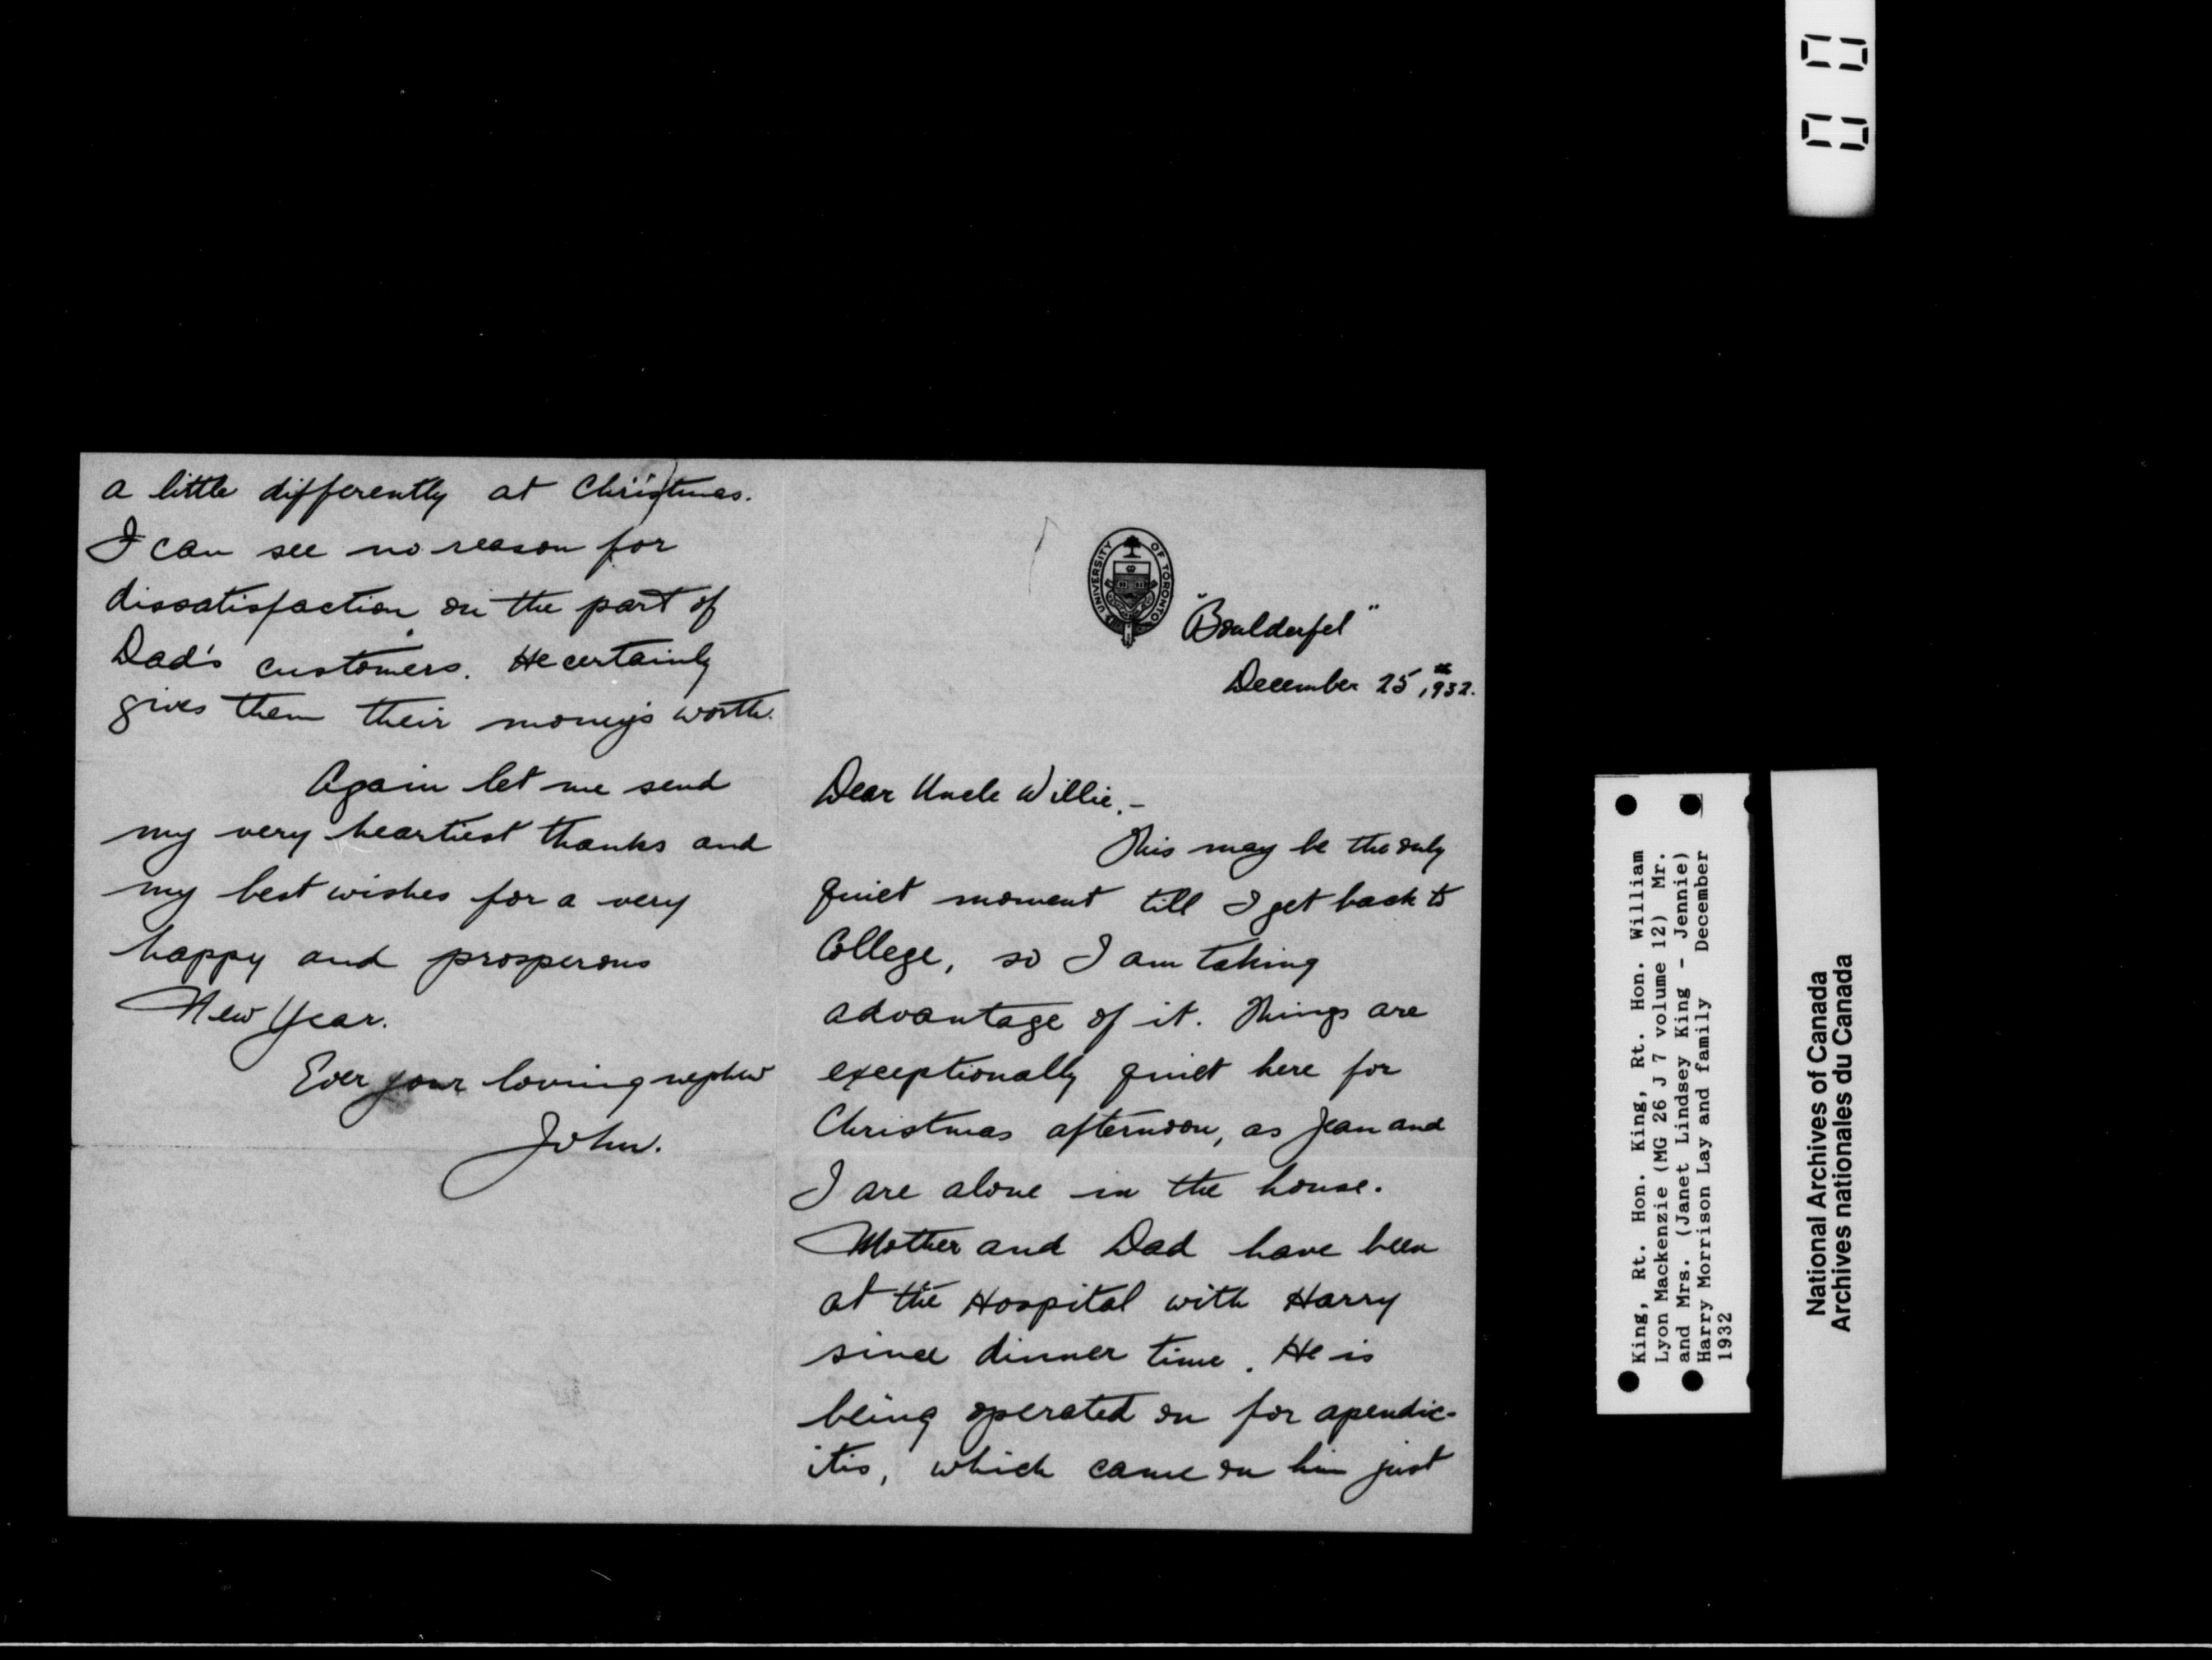 a little differently at Christmas.
I can see no reason for
dissatisfaction on the part of
Dad's customers. He certainly
gives them their money's worth.
Again let me send
my very heartiest thanks and
my best wishes for a very
happy and prosperous
New Year.
Ever your loving nephew
John.
UNIVERSITY OF TORONTO
December 25th, 1932.
Dear Uncle Willie,-
This may be the only
quiet moment till I get back to
College, so I am taking
advantage of it. Things are
exceptionally quiet here for
Christmas afternoon, as Jean and
I are alone in the house.
Mother and Dad have been
at the Hospital with Harry
since dinner time. He is
being operated on for apendic-
itis, which came on him just
King, Rt. Hon. King, Rt. Hon. William
Lyon Mackenzie (MG 26 J 7 volume 12) Mr.
and Mrs. (Janet Lindsey King - Jennie)
Harry Morrison Lay and family December
1932
National Archives of Canada
Archives nationales du Canada